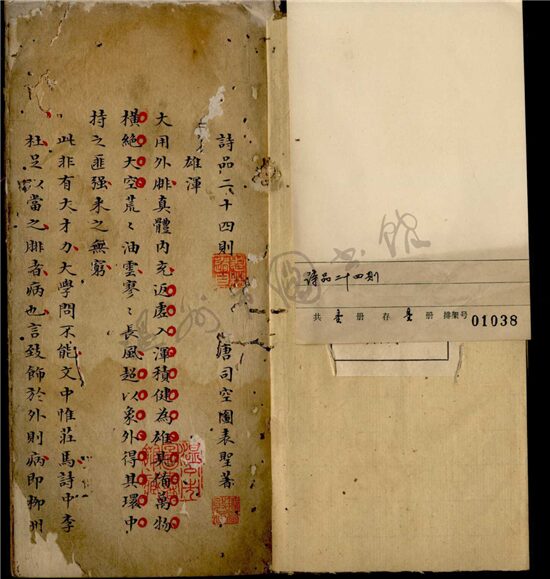 詩品二十四則 唐司空圖表聖著
雄渾
大用外腓真體内充返虛入渾積健為雄具備萬物
橫絕太空荒〻油雲寥〻長風超以象外得其環中
持之匪强来之無窮
此非有大才力大學問不能文中惟莊馬詩中李
杜足以當之腓者病也言致飾於外則病即柳州
詩品二十四則
共 壹 册 存 壹 册 排架号 01038